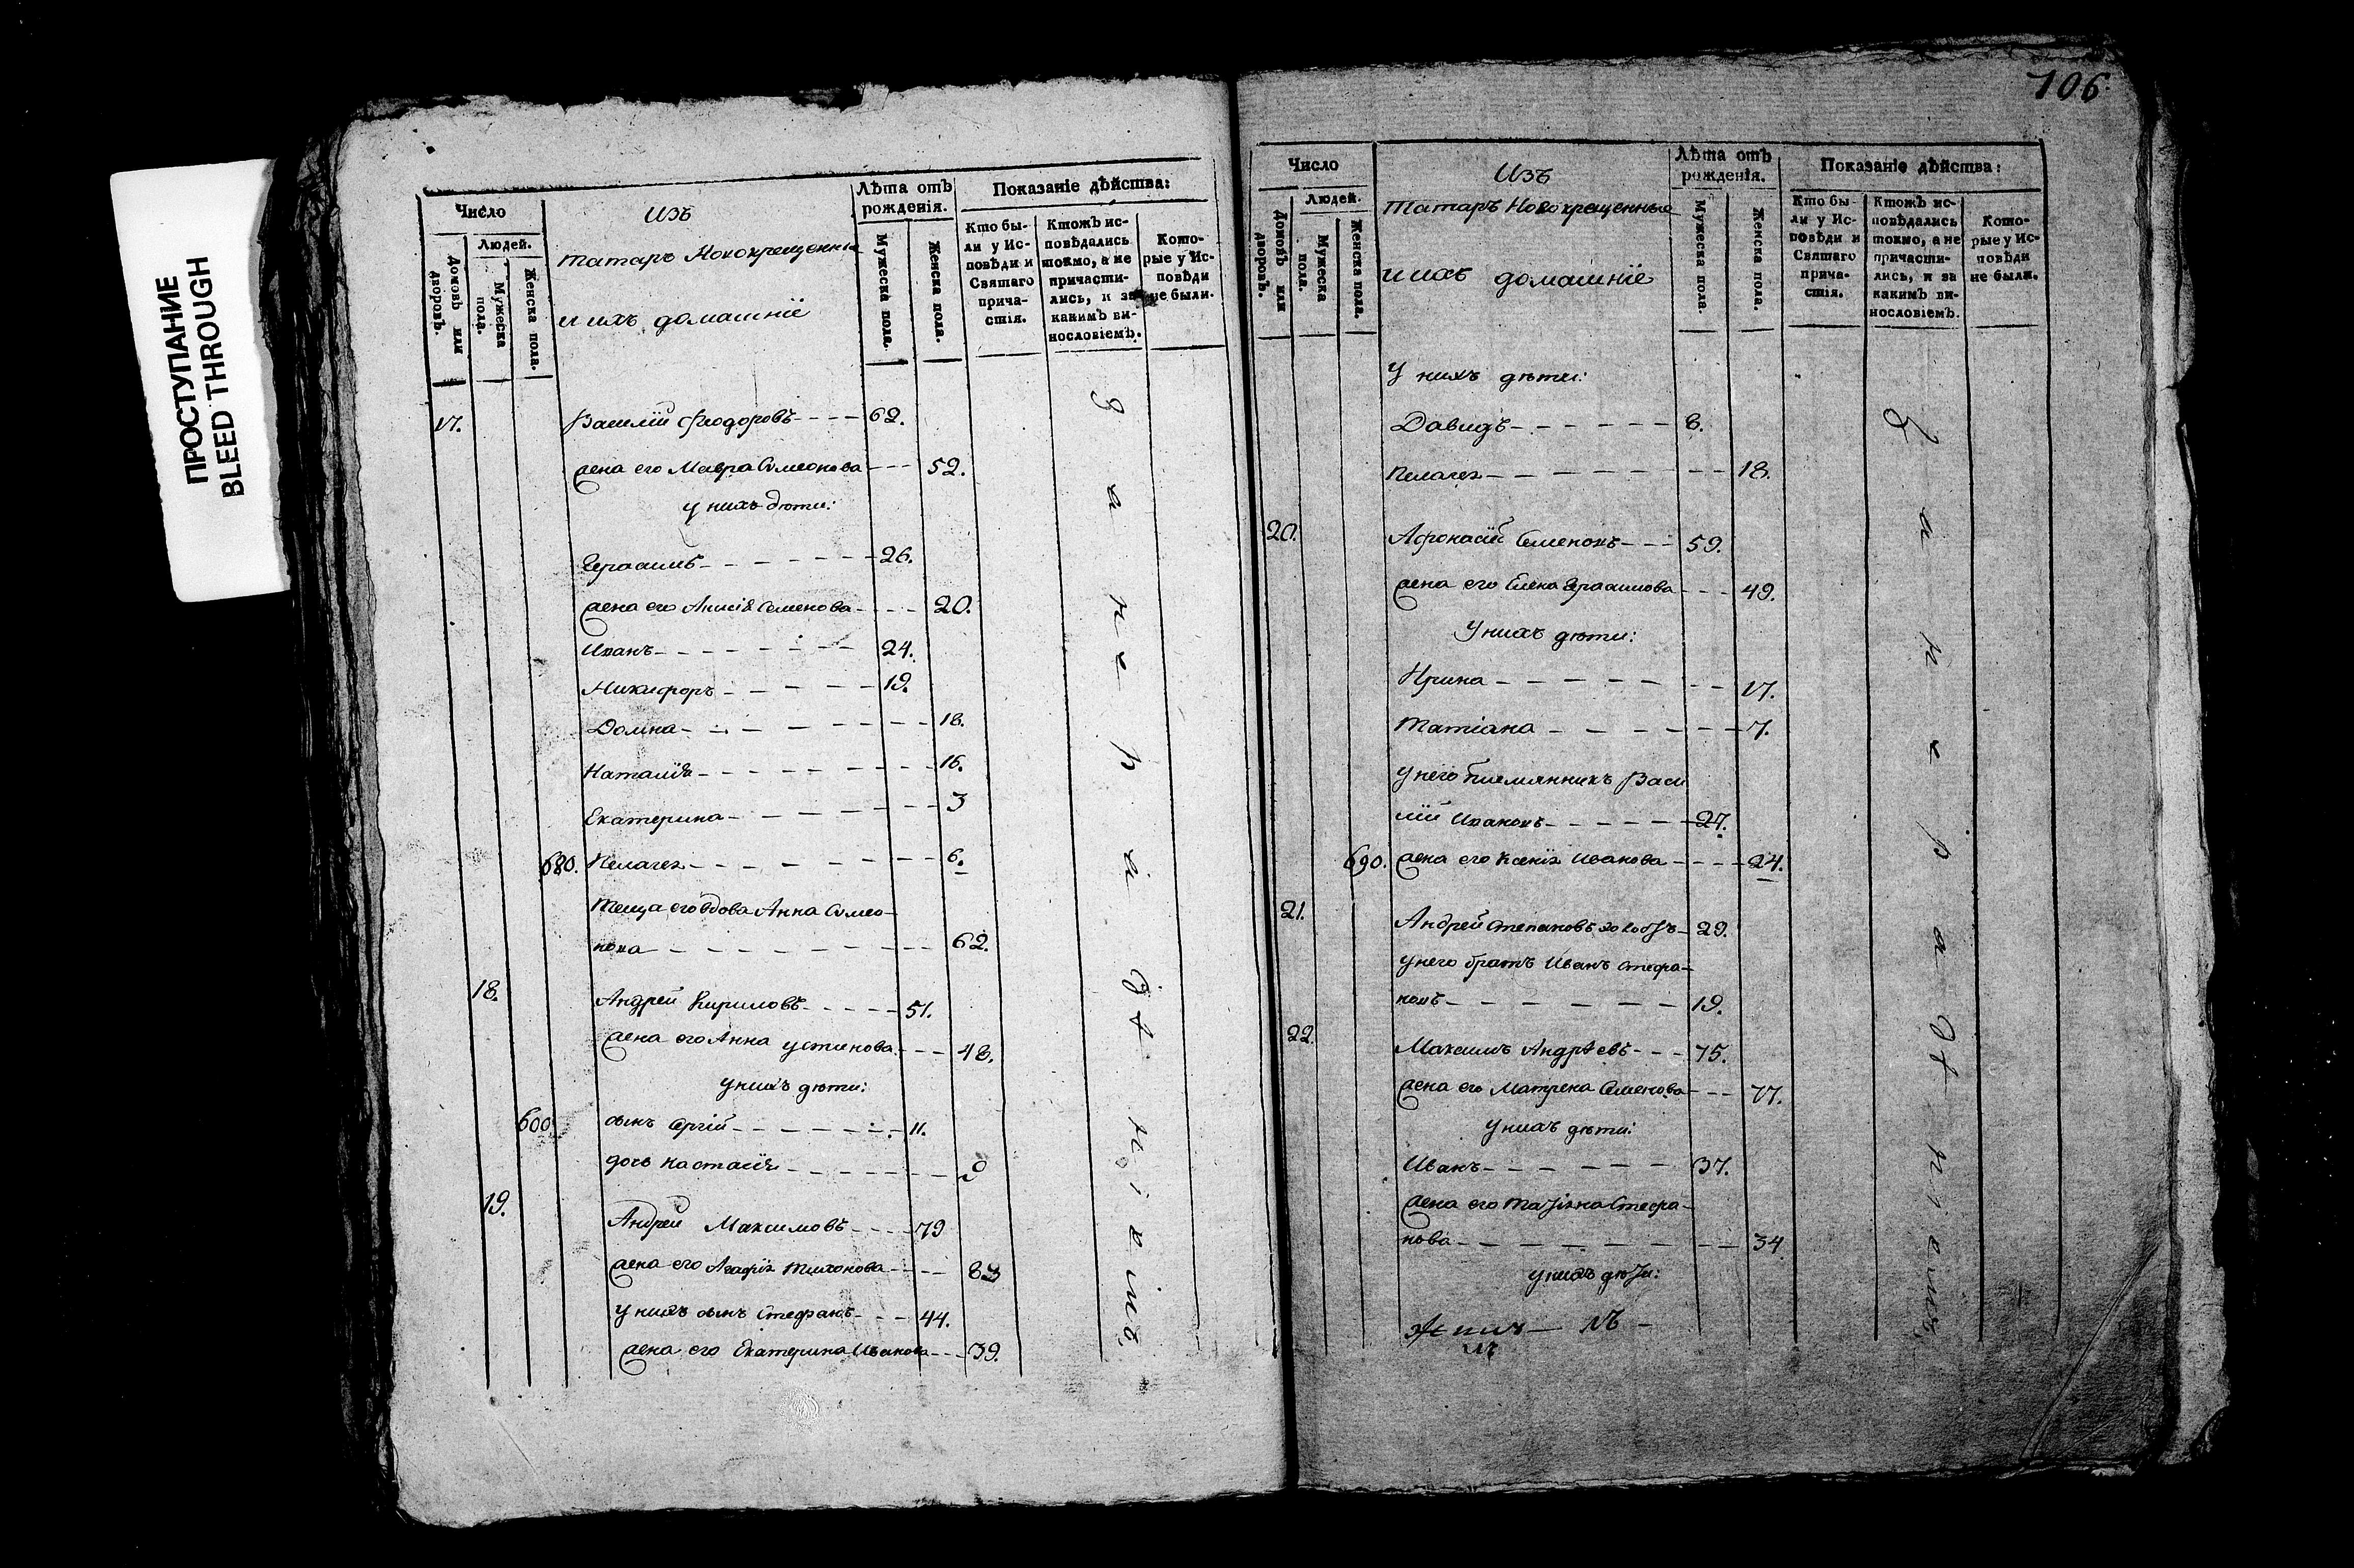 ПРОСТУПАНИЕ
BLEED THROUGH
Число
Людей.
Домовъ или дворовъ.
Мужеска пола.
Женска пола.
Изъ
татаръ Новокрещенные
и ихъ домашніе
Лѣта отъ рожденія.
Мужеска пола.
Женска пола.
Показаніе дѣйства:
Кто бы-
ли у Ис-
повѣди и
Святаго
прича-
стія.
Ктожъ ис-
повѣдались
токмо, а не
причасти-
лись, и за
какимъ ви-
нословіемъ.
Кото-
рые у Ис-
повѣди
не были.
17. Василій Феодоровъ - - - - 62.
жена его Мавра Симеонова - - - 52.
у нихъ дѣти:
Герасимъ - - - - - - 26.
жена его Анисія Семенова - - - - 20.
Иванъ - - - - - - - - 24.
Никифоръ - - - - - 19.
Домна - - - - - - - - 18.
Наталія - - - - - - - - 16.
Екатерина - - - - - - - 3
680. Пелагея - - - - - - - - 6.
Теща его вдова Анна Симео-
нова - - - - - - - - - - 62.
18. Андрей Кириловъ - - - - - 51.
жена его Анна Устинова - - - 48.
у нихъ дѣти:
600 сынъ Сергій - - - - - - - 11.
дочь Настасія - - - - - - - 9
19. Андрей Максимовъ - - - - 79
жена его Агафія Тихонова - - - - 83
у нихъ сынъ Стефанъ - - - 44.
жена его Екатерина Иванова - - - 39.
за нерадѣніемъ
106.
Число
Людей.
Домовъ или дворовъ.
Мужеска пола.
Женска пола.
Изъ
татаръ Новокрещенные
и ихъ домашніе
Лѣта отъ рожденія.
Мужеска пола
Женска пола.
Показаніе дѣйства:
Кто бы-
ли у Ис-
повѣди и
Святаго
прича-
стія.
Ктожъ ис-
повѣдались
токмо, а не
причасти-
лись, и за
какимъ ви-
нословіемъ.
Кото-
рые у Ис-
повѣди
не были.
У нихъ дѣти:
Давидъ - - - - - - - 8.
Пелагея - - - - - - - - 18.
20. Афонасій Семеновъ - - - 59.
жена его Елена Герасимова - - - 49.
У нихъ дѣти:
Ирина - - - - - - - - 17.
Татіана - - - - - - - 7.
у него племянникъ Васи
лій Ивановъ - - - - - - 27.
690. жена его Ксенія Иванова - - - - 24.
21. Андрей Степановъ холостъ - 29.
у него братъ Иванъ Стефа-
новъ - - - - - - - 19.
22. Максимъ Андрѣевъ - - - 75.
жена его Матрена Семенова - - - 77.
у нихъ дѣти:
Иванъ - - - - - - 37.
жена его Татіана Стефа-
нова - - - - - - - - - 34
у нихъ дѣти:
за нерадѣніемъ